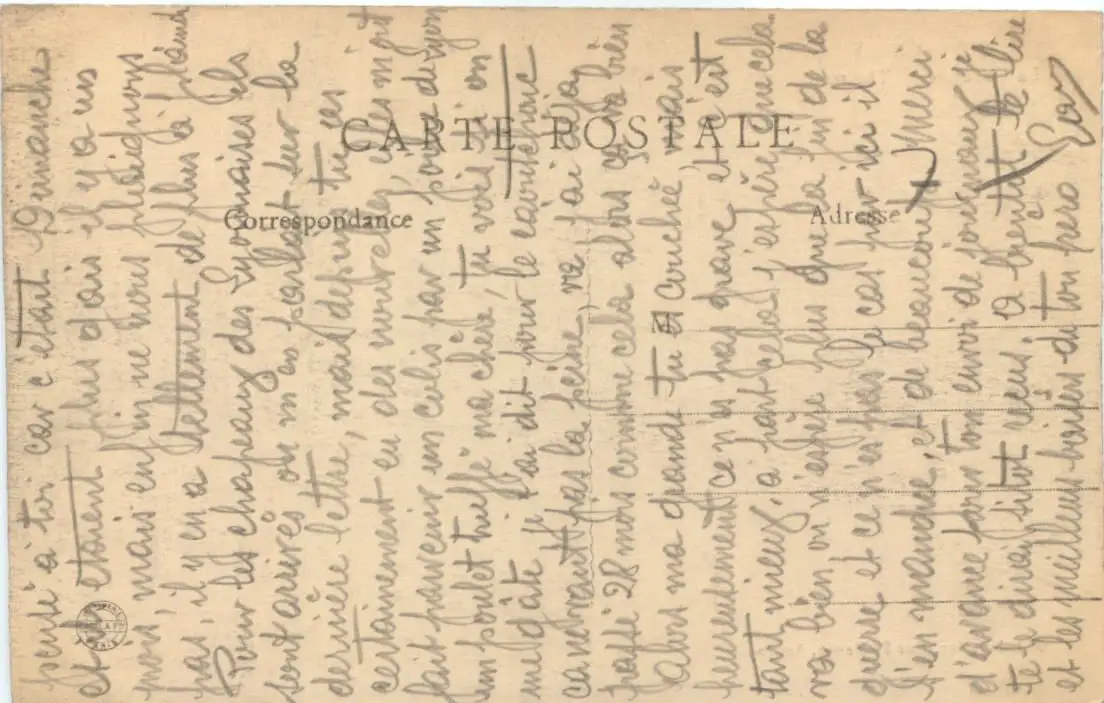 CARTE POSTALE
Correspondance
Adresse
M
pensé à toi car c'était Dimanche
et étaient plus d'ais il y a us
mais enfin ne nous plaignons
pas, il y en a tellement de plus à plaindre
Pour les chapeaux des Lyonnaises ils
sont arrivés on m'en parlait sur la
dernière lettre, mais depuis tu as
certainement eu des nouvelles, elles m'ont
fait parvenir un colis par un poilu de Lyon
un poulet truffé ma chère, tu vois si on
me gâte je l'ai dit pour le caoutchouc
ce n'est pas la peine, va j'ai déjà
passé 28 mois comme cela alors ça va bien
Alors ma grande tu es couchée mais
heureusement ce n'es pas grave et c'est
tant mieux, à part cela j'espère que cela
va bien on n'espère plus que la fin de la
guerre et ce n'es pas le cas par ici il
s'en manque, et de beaucoup. Merci
d'avance pour ton envoi de journaux je
te le dirai sitôt reçus. A bientôt de te lire
et les meilleurs baisers de ton pero